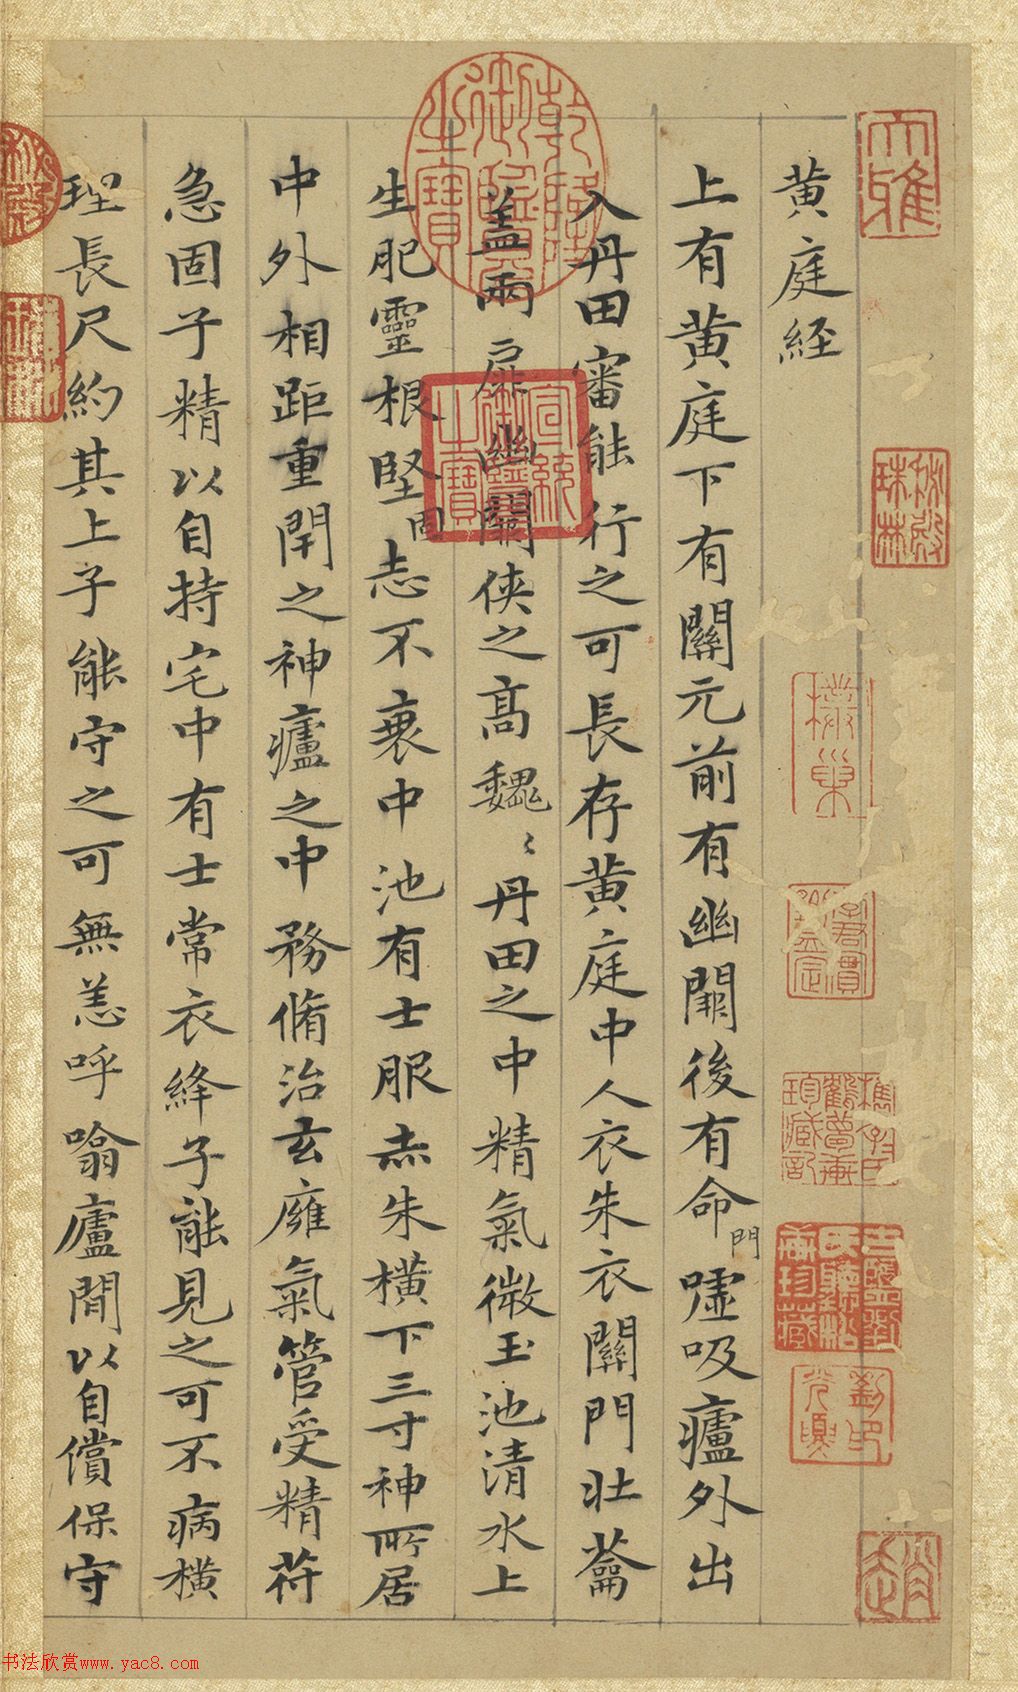 黄庭経
上有黄庭下有關元前有幽闕後有命門嘘吸廬外出
入丹田審能行之可長存黄庭中人衣朱衣關門壮蘥
盖兩扉幽闕侠之高魏〻丹田之中精氣微玉池清水上
生肥靈根堅固志不衰中池有士服赤朱橫下三寸神所居
中外相距重閇之神廬之中務脩治玄廱氣管受精苻
急固子精以自持宅中有士常衣絳子能見之可不病橫
理長尺約其上子能守之可無恙呼噏廬間以自償保守
乾隆御覽之寶
宣統御鑑之寶
大雅
棟東
劉印
书法欣赏www.yac8.com